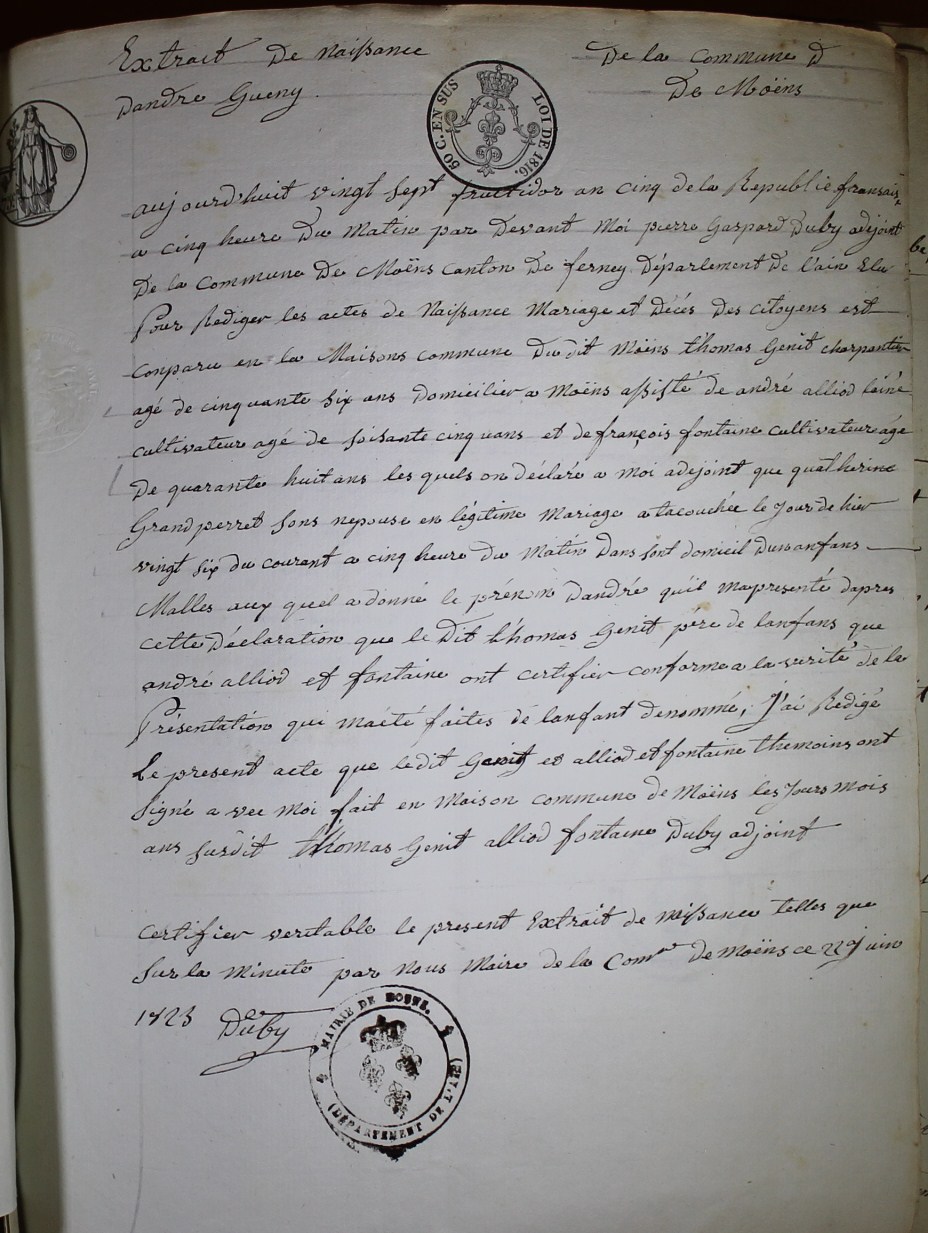 Extrait De naissance
De la Commune D
Dandre Gueny.
De Moëns
50 C. EN SUS
LOI DE 1816.
aujourd'huit vingt Sept fructidor an cinq de la Republie fransais
a cinq heure Du Matin par Devant Moi pierre Gaspard Duby adjoint
De la Commune De Moëns Canton De ferney Département De l'ain Elu
Pour Rediger les actes de Naissance Mariage et Décés Des citoyens est
Conparu en la Maisons commune Dudit Moëns thomas Genit charpentier
agé de cinquante Six ans Domicilier a Moëns assisté de andré alliod lainé
cultivateur agé de soisante cinquans et de françois fontaine cultivateur agé
De quarante huit ans les quels on déclare a moi adjoint que quatherine
Grandperret sons nepouse en légitime Mariage a tacouchée le Jour de hier
vingt six du courant a cinq heure du Matin Dans sont domicil dunanfans
Malles aux quel a donné le prénom Dandré quil mapresenté dapres
cette Déclaration que le Dit thomas Genit pére de lanfans que
andré alliod et fontaine ont certifier conforme a la verité, de la
Présentation qui maété faites de lanfant denommé, J'ai Rédigé
Le present acte que ledit Genit et alliod et fontaine themoins ont
Signé a vec moi fait en Maison commune de Moëns les Jours mois
ans susdit thomas Genit alliod fontaine Duby adjoint
Certifier veritable le present Extrait de naissance telles que
Sur la Minute par Nous Maire de la Com.ne De Moëns ce 22 Juin
1823 Duby
MAIRIE DE MOENS.
(DÉPARTEMENT DE L'AIN)